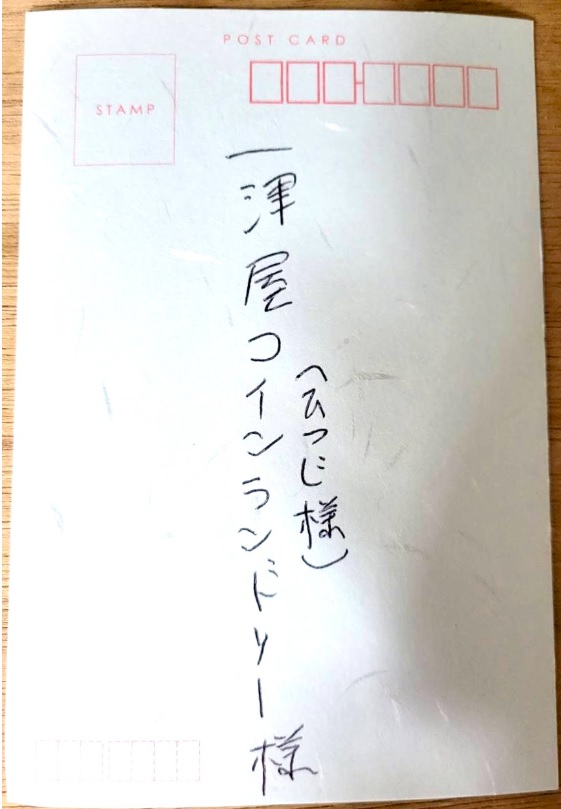 POST CARD
STAMP
一津屋コインランドリー様
(ひつじ様)